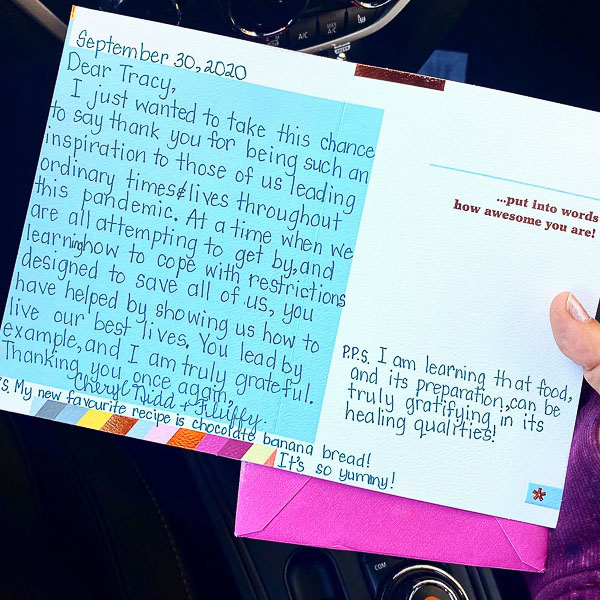 September 30, 2020
Dear Tracy,
I just wanted to take this chance
to say thank you for being such an
inspiration to those of us leading
ordinary times & lives throughout
this pandemic. At a time when we
are all attempting to get by, and
learning how to cope with restrictions
designed to save all of us, you
have helped by showing us how to
live our best lives. You lead by
example, and I am truly grateful.
Thanking you once again,
Cheryl Nidd + Fluffy.
P.S. My new favourite recipe is chocolate banana bread!
It's so yummy!
...put into words
how awesome you are!
P.P.S. I am learning that food,
and its preparation, can be
truly gratifying in its
healing qualities!
A/C
MAX
A/C
COM